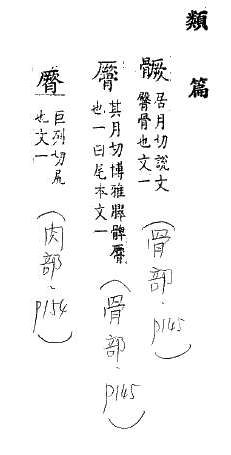 類篇
髖 居月切說文
臀骨也文一
(骨部、p145)
其月切博雅臗髀
也一曰尾本文一
(骨部、p145)
巨列切尻
也文一
(肉部、p154)